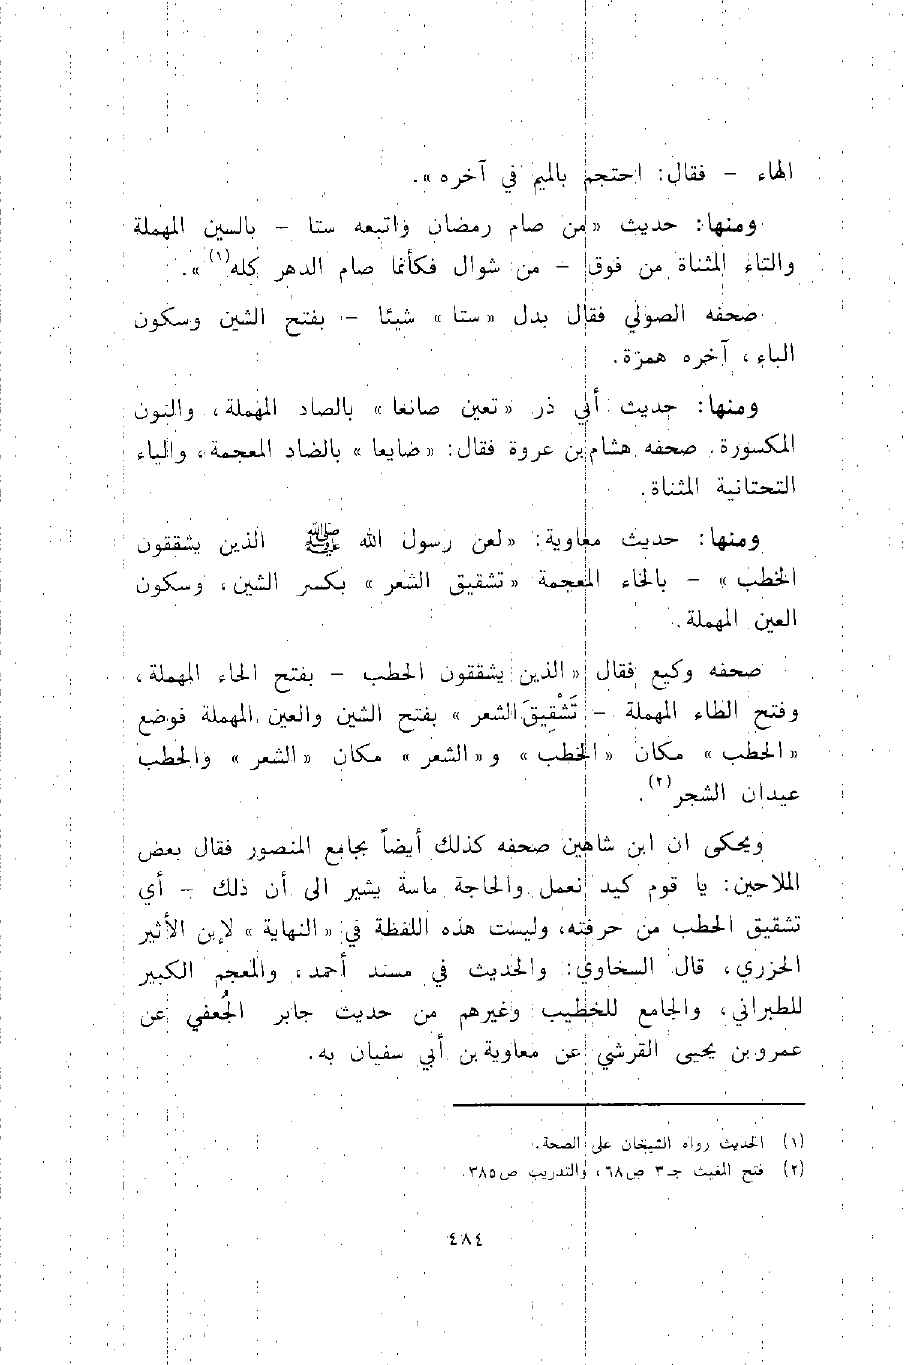 الهاء – فقال: احتجم بالميم في آخره ».
ومنها: حديث « من صام رمضان واتبعه ستا – بالسين المهملة
والتاء المثناة من فوق – من شوال فكأنما صام الدهر كله(١) ».
صحفه الصولي فقال بدل « ستا » شيئا – بفتح الشين وسكون
الياء ، آخره همزة.
ومنها: حديث أبي ذر « تعين صانعا » بالصاد المهملة، والنون
المكسورة. صحفه هشام بن عروة فقال: « ضايعا » بالضاد المعجمة، والياء
التحتانية المثناة.
ومنها: حديث معاوية: « لعن رسول الله ﷺ الذين يشققون
الخطب » – بالخاء المعجمة « تشقيق الشعر » بكسر الشين، وسكون
العين المهملة.
صحفه وكيع فقال « الذين يشققون الحطب – بفتح الحاء المهملة،
وفتح الطاء المهملة – تَشْقِيقَ الشعر » بفتح الشين والعين المهملة فوضع
« الحطب » مكان « الخطب » و « الشعر » مكان « الشعر » والحطب
عيدان الشجر(٢).
ويحكى ان ابن شاهين صحفه كذلك أيضاً بجامع المنصور فقال بعض
الملاحين: يا قوم كيد نعمل والحاجة ماسة يشير الى أن ذلك – أي
تشقيق الحطب من حرفته، وليست هذه اللفظة في « النهاية » لإبن الأثير
الجزري، قال السخاوي: والحديث في مسند أحمد، والمعجم الكبير
للطبراني، والجامع للخطيب وغيرهم من حديث جابر الجُعفي عن
عمرو بن يحيى القرشي عن معاوية بن أبي سفيان به.
(١) الحديث رواه الشيخان على الصحة.
(٢) فتح المغيث جـ ٣ ص ٦٨، والتدريب ص ٣٨٥.
٤٨٤